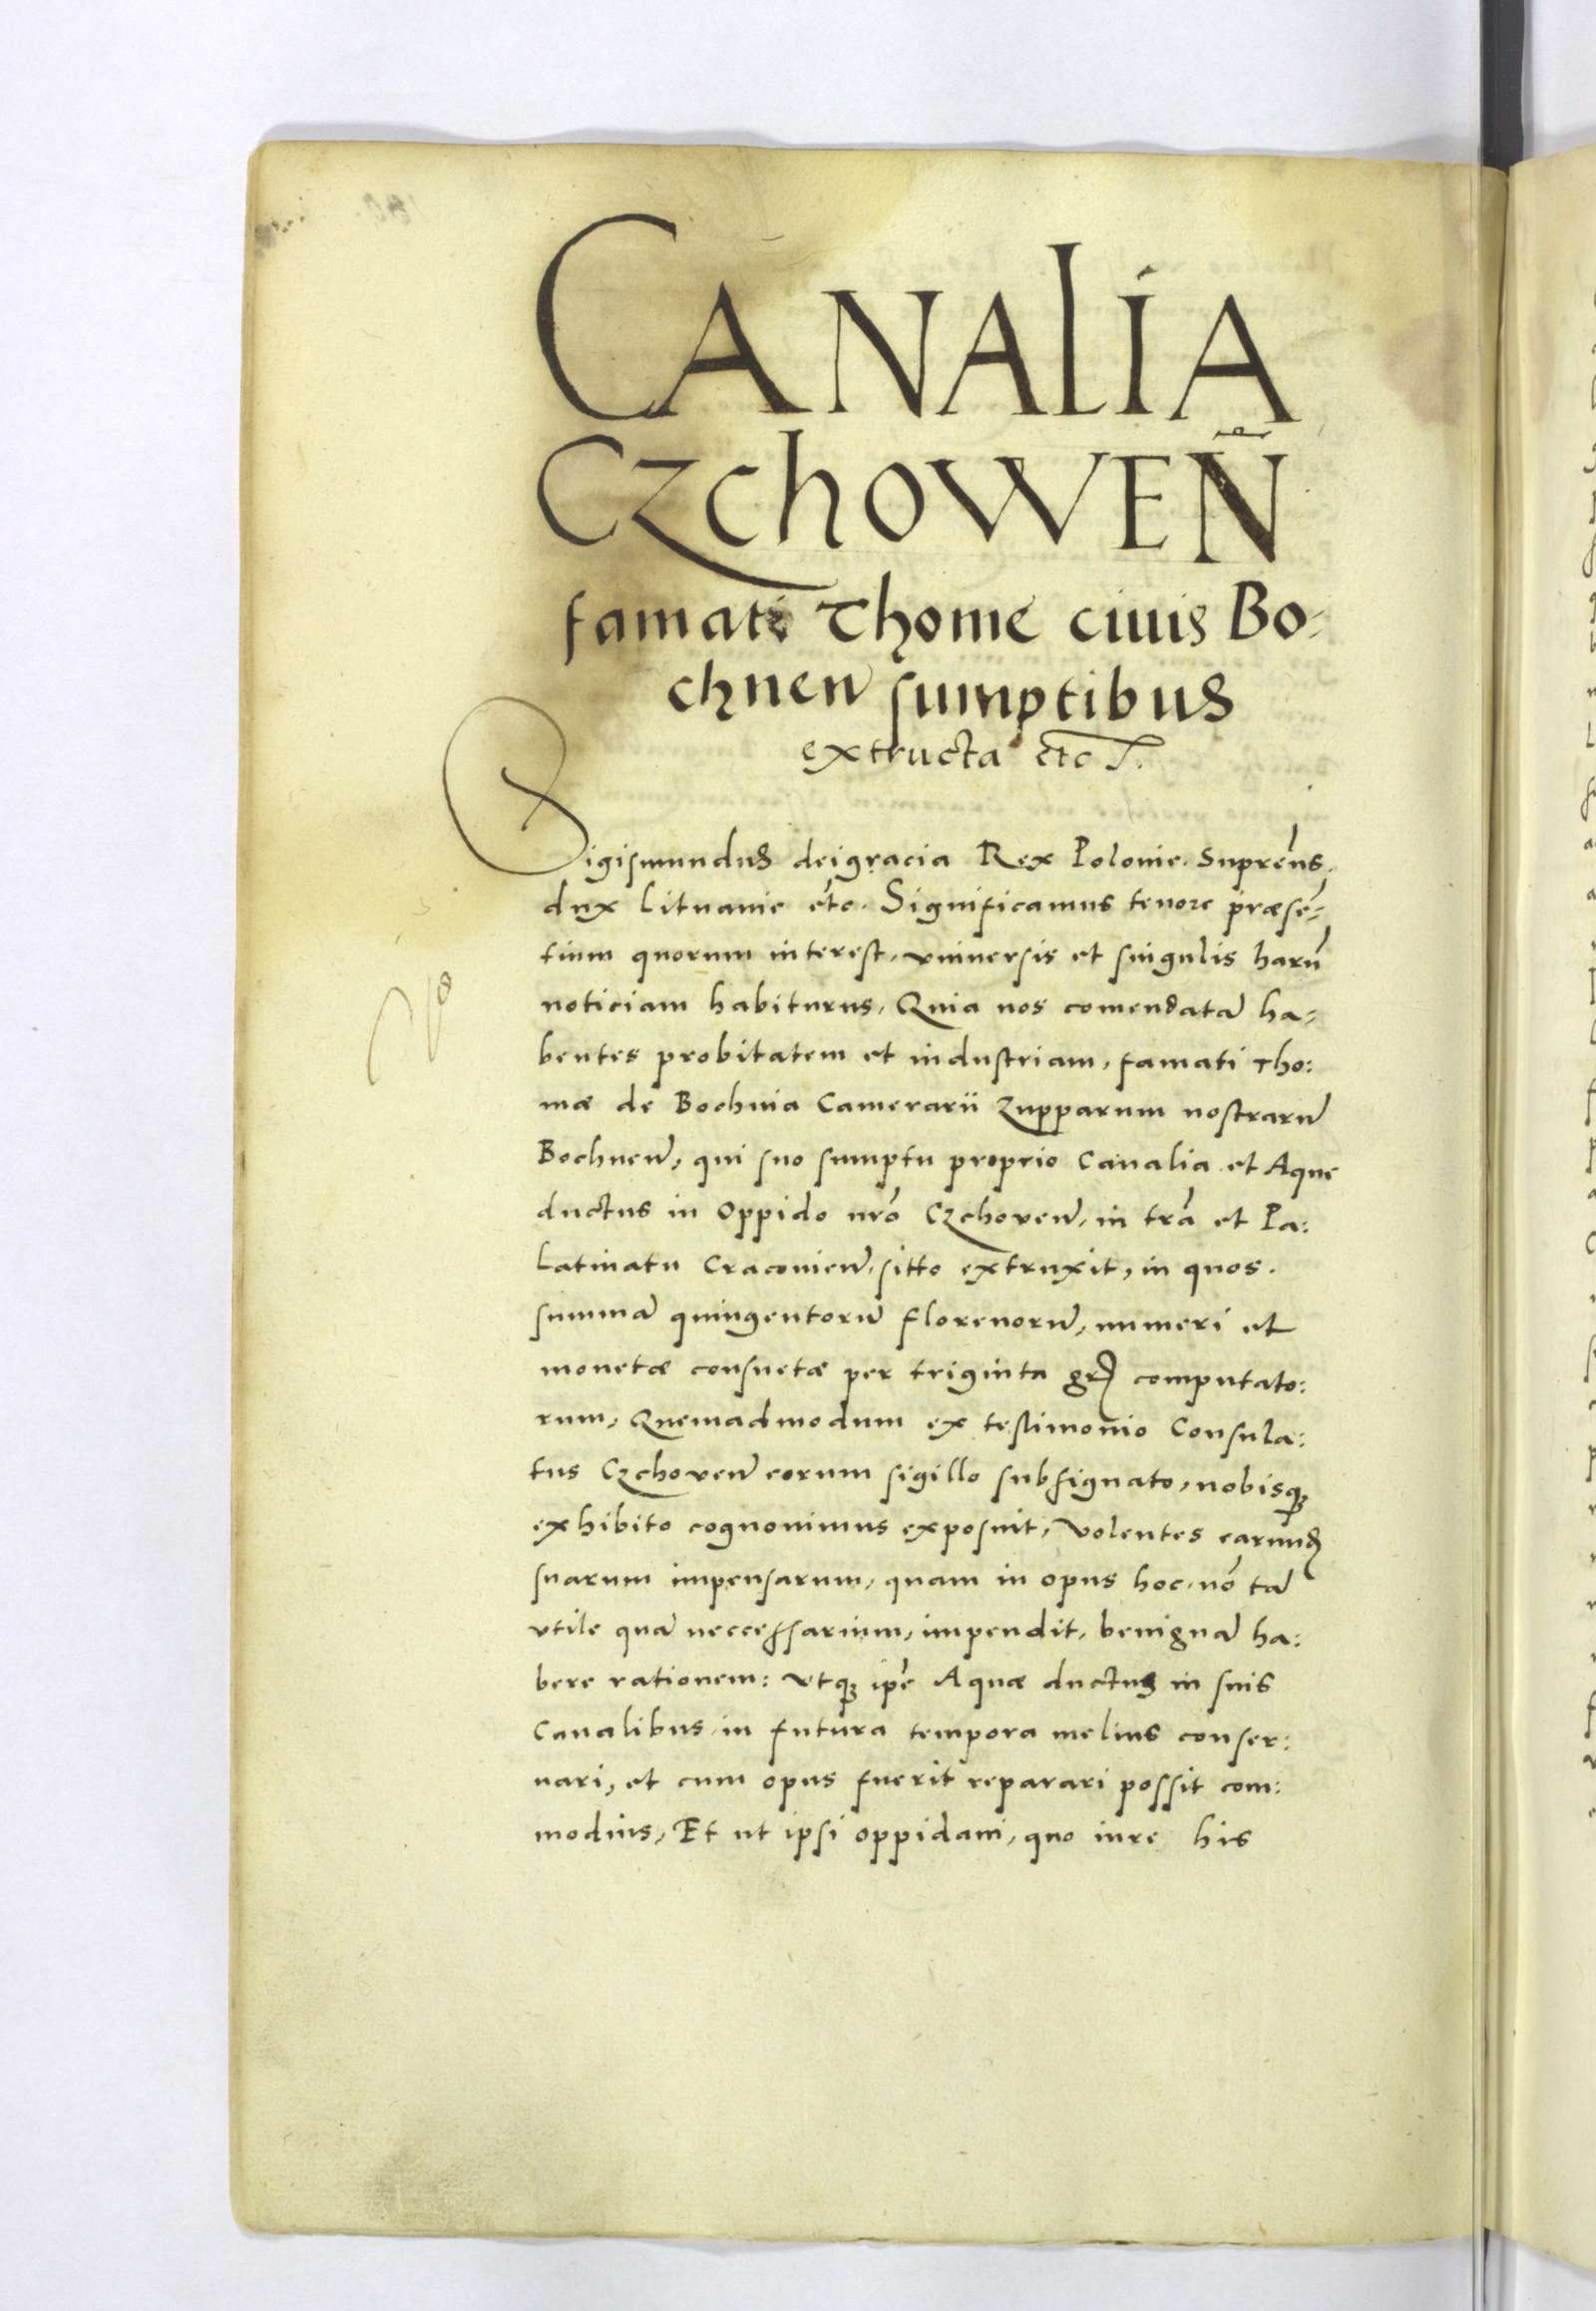 CANALIA
CZCHOWEÑ
famati Thome ciuis Bo-
chnen sumptibus
extructa etc.
Sigismundus deigracia Rex Polonie. Supremus.
dux Lituanie etc. Significamus tenore præsē-
tium quorum interest, vniuersis et singulis harū
noticiam habiturus, Quia nos comendatā ha-
bentes probitatem et industriam, famati Tho:
mæ de Bochnia Camerarii Zupparum nostrarū
Bochnen, qui suo sumptu proprio Canalia et Aque
ductus in Oppido nrō Czchoven, in trā et Pa:
latinatu Cracovien, sitto extruxit, in quos.
summā quingentorū florenorū, numeri et
monetæ consuetæ per triginta gr computato:
rum, Quemadmodum ex testimonio Consula:
tus Czchoven eorum sigillo subsignato, nobisqꝫ
exhibito cognovimus exposuit, Volentes earund
suarum impensarum, quam in opus hoc nō tā
vtile quā neccessarium, impendit, benignā ha:
bere rationem: Vtqꝫ ipē Aquæ ductus in suis
Canalibus in futura tempora melius conser:
uari, et cum opus fuerit reparari possit com:
modius, Et ut ipsi oppidani, quo iure his